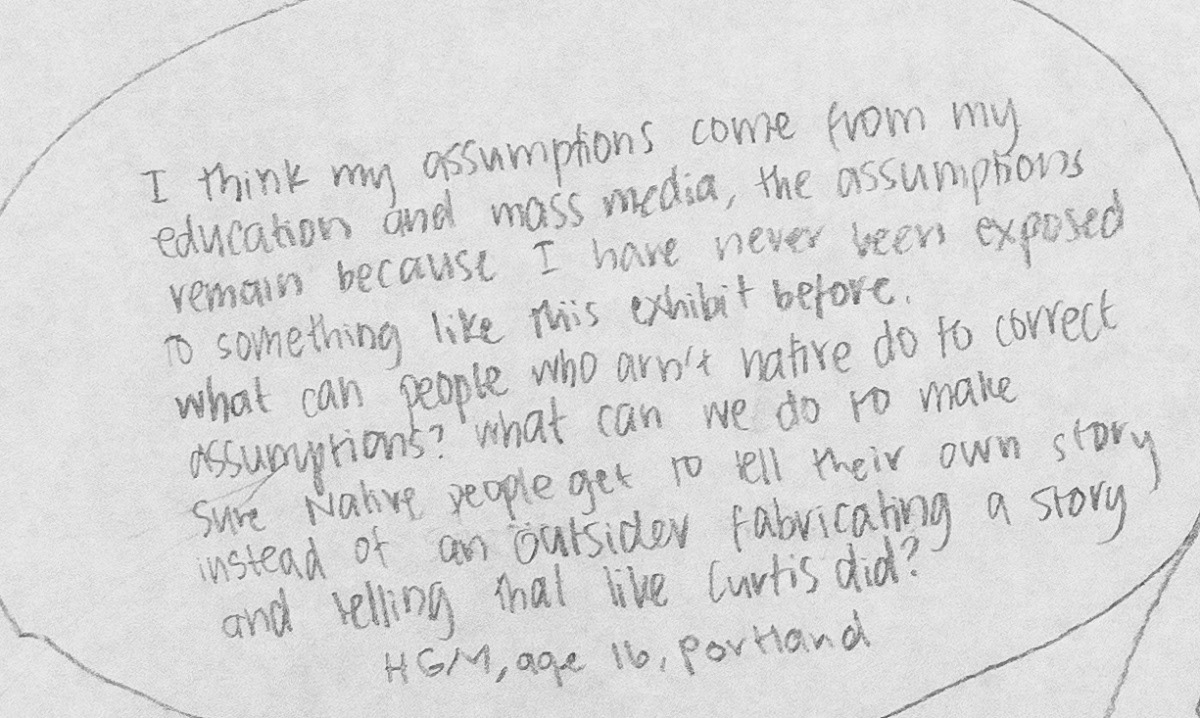 I think my assumptions come from my
education and mass media, the assumptions
remain because I have never been exposed
to something like this exhibit before.
what can people who arn't native do to correct
assumptions? what can we do to make
sure Native people get to tell their own story
instead of an outsider fabricating a story
and telling that like Curtis did?
HGM, age 16, portland